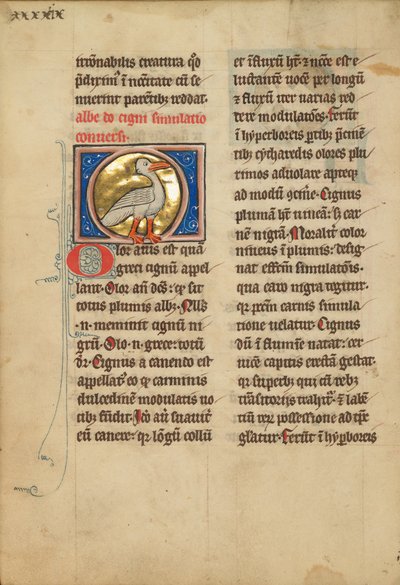 irr̄onabilis creatura qđ
p̄dixim⁹ i neccitate cū se
nuerint parētib⁹ reddat.
albedo cigni simulatio
conuersi.
Olor auis est quā
greci cignū appel
lant. Olor aū dc̄s: eo qr sit
totus plumis alb⁹. Null⁹
.n. meminit cignū ni
grū. Olo .n. grece: totū
dr̄. Cignus a canendo est
appellat⁹ eo qr carminis
dulcedinē modulatis uo
cib⁹ fūdit. Iđo aū suauit̄
eū canere: qr lōgū collū
et īflexū ht̄. ⁊ ncc̄e est e
luctantē uocē per longū
⁊ flexū iter uarias red
dere modulatōes. Ferūt
ī hyperboreis ptib⁹ p̄cinē
tib⁹ cytharedis olores plu
rimos aduolare apteqr
ad modū 9cinē. Cignus
plumā ht̄ niueā: sꝫ car
nē nigrā. Moralit̄ color
niueus ī plumis: desig
nat effcm̄ simulatōis.
qua caro nigra tegitur.
qr pcm̄ carnis simula
tione uelatur. Cignus
dū ī flumīe natat: cer
uicē capitis erectā gestat.
qr superb⁹ qui cū reb⁹
trāsitoriis trahit̄: ⁊ labē
tiū rer possessione ad tp̄r
glatur. Ferūt ī hyperboreis